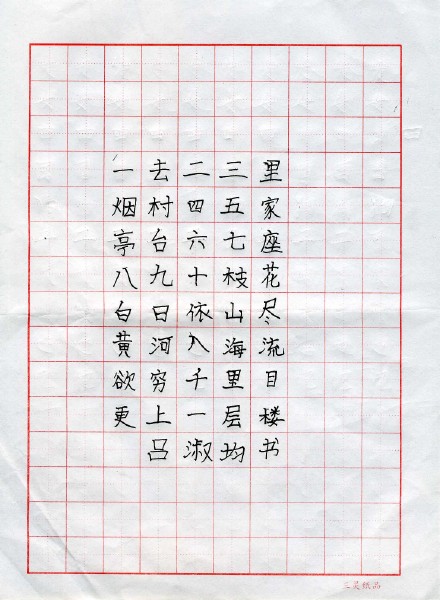 一去二三里
烟村四五家
亭台六七座
八九十枝花
白日依山尽
黄河入海流
欲穷千里目
更上一层楼
吕淑均书